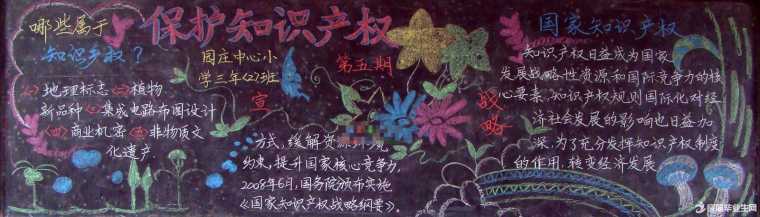 保护知识产权
哪些属于
知识产权？
园庄中心小
学三年〈2〉班
第五期
宣
〈一〉地理标志〈二〉植物
新品种〈三〉集成电路布图设计
〈四〉商业机密〈五〉非物质文
化遗产
国家知识产权
战略
知识产权日益成为国家
发展战略性资源和国际竞争力的核
心要素，知识产权规则国际化对经
济社会发展的影响也日益加
深，为了充分发挥知识产权制度
的作用，转变经济发展
方式，缓解资源环境
约束，提升国家核心竞争力，
2008年6月，国务院颁布实施
《国家知识产权战略纲要》。